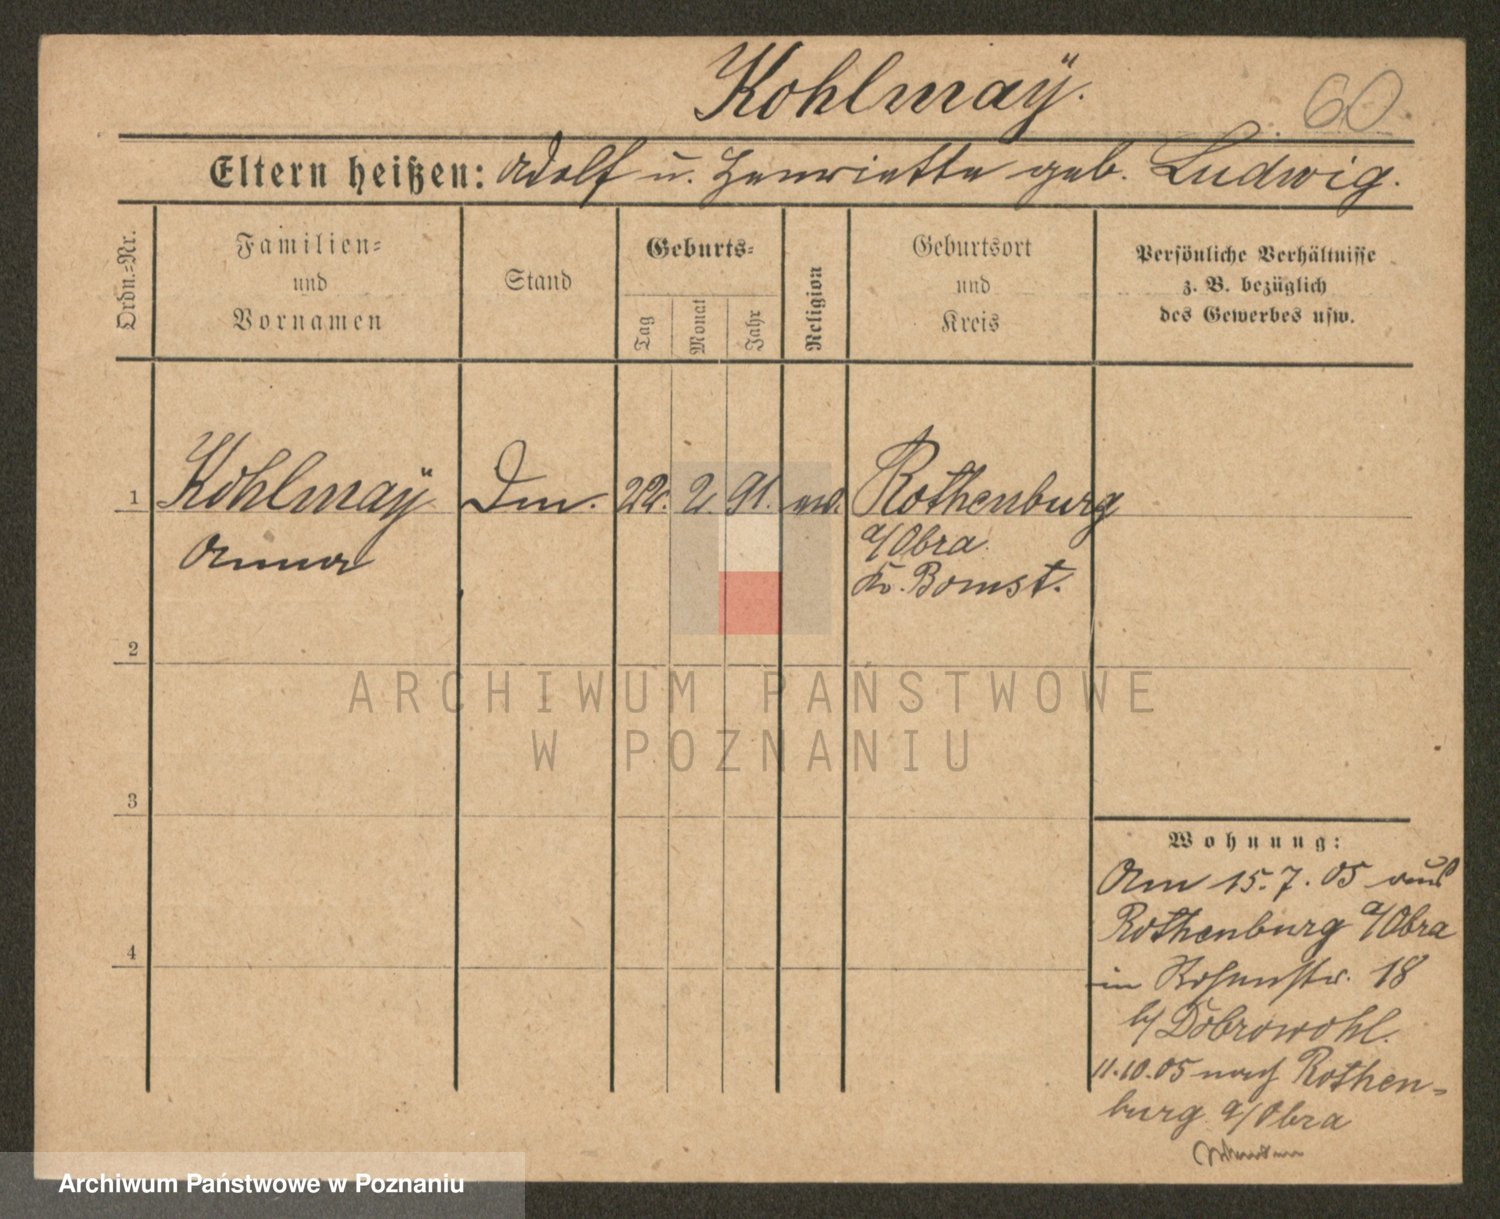 Kohlmaÿ.
60.
Eltern heißen: Adolf u. Henriette geb. Ludwig.
Ordn.-Nr.
Familien-
und
Vornamen
Stand
Geburts-
Tag
Monat
Jahr
Religion
Geburtsort
und
Kreis
Persönliche Verhältnisse
z. B. bezüglich
des Gewerbes usw.
1 Kohlmaÿ 22. 2. 91. Rothenburg
Anna
a/Obra
Kr. Bomst.
2
3
4
Wohnung:
Am 15.7.05 aus
Rothenburg a/Obra
in Rosenstr. 18
b/ Dobrowohl.
11.10.05 nach Rothen-
burg a/Obra
ARCHIWUM PAŃSTWOWE
W POZNANIU
Archiwum Państwowe w Poznaniu